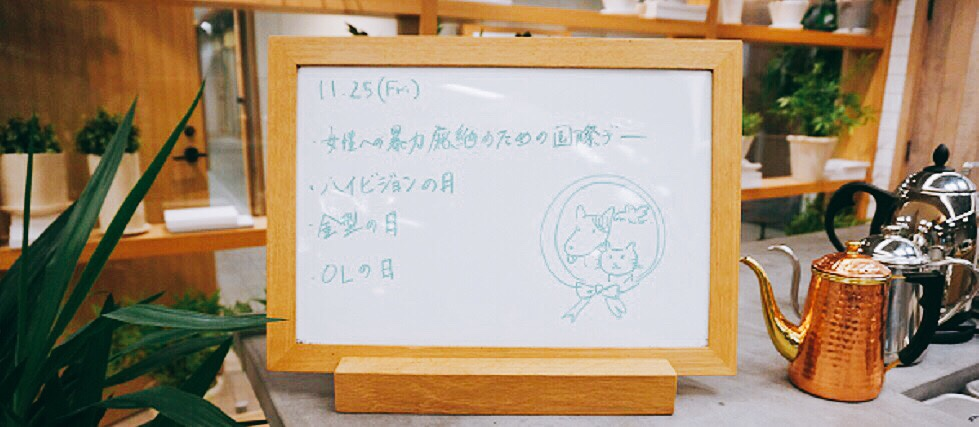 11.25(Fri)
・女性への暴力廃絶のための国際デー
・ハイビジョンの日
・金型の日
・OLの日